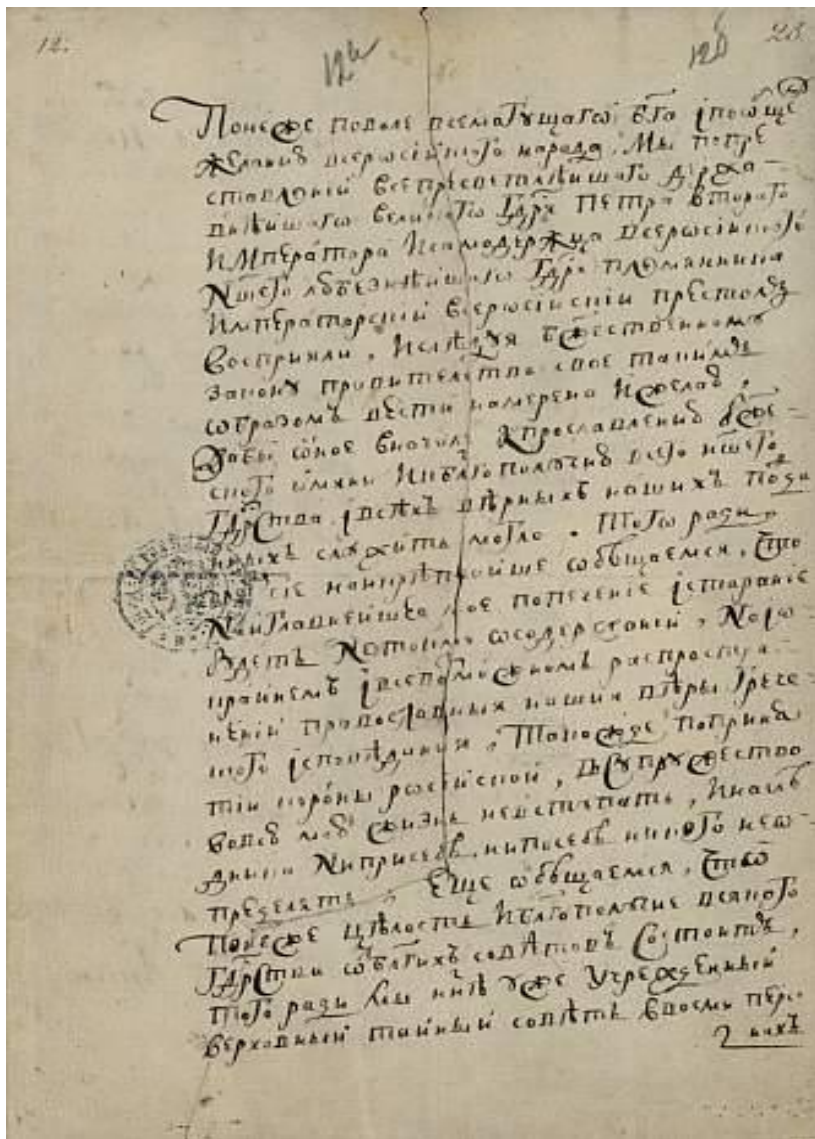 12.
12а
12б
23
Понеже поволе всемогущаго бга ї пообще
желанию всеросіискаго народа, Мы попре
ставлениі всепресветлеишаго держа
внѣишаго великаго гдря Петра второго
Императора и самодержца всеросіискаго
Ншего любезнѣишаго гдря племянника
Императорскиі всеросіискиі престолъ
восприяли, и следуя бжественному
закону правителство свое такимъ
образомъ вести намерена и желаю,
дабы оное вначале к прославлению бже
скаго имяни и кблгополучию всего ншего
гдрства ї всѣхъ вѣрныхъ нашихъ подда
нныхъ служить могло. Того ради,
чрез сие наикрѣпчаише обещаемся, что
Наиглавнеишее мое попечение ї старание
будетъ не токмо о содержаниі, но ї о
краинемъ ї всевозможномъ распростра
нениі православныя нашия вѣры грече
скаго їсповѣдания, Такожде поприня
тиі короны росіискоі, в супружество
вовсю мою жизнь не вступать, и наслѣ
дника ни присебѣ ни по себѣ никого неопределять
пределять. Еще обещаемся, что
понеже целость и блгополучие всякаго
гдрства от блгихъ советовъ состоитъ,
того ради мы ннѣ уже учрежденныі
верховныі таиныі советъ в восми персо
нахъ